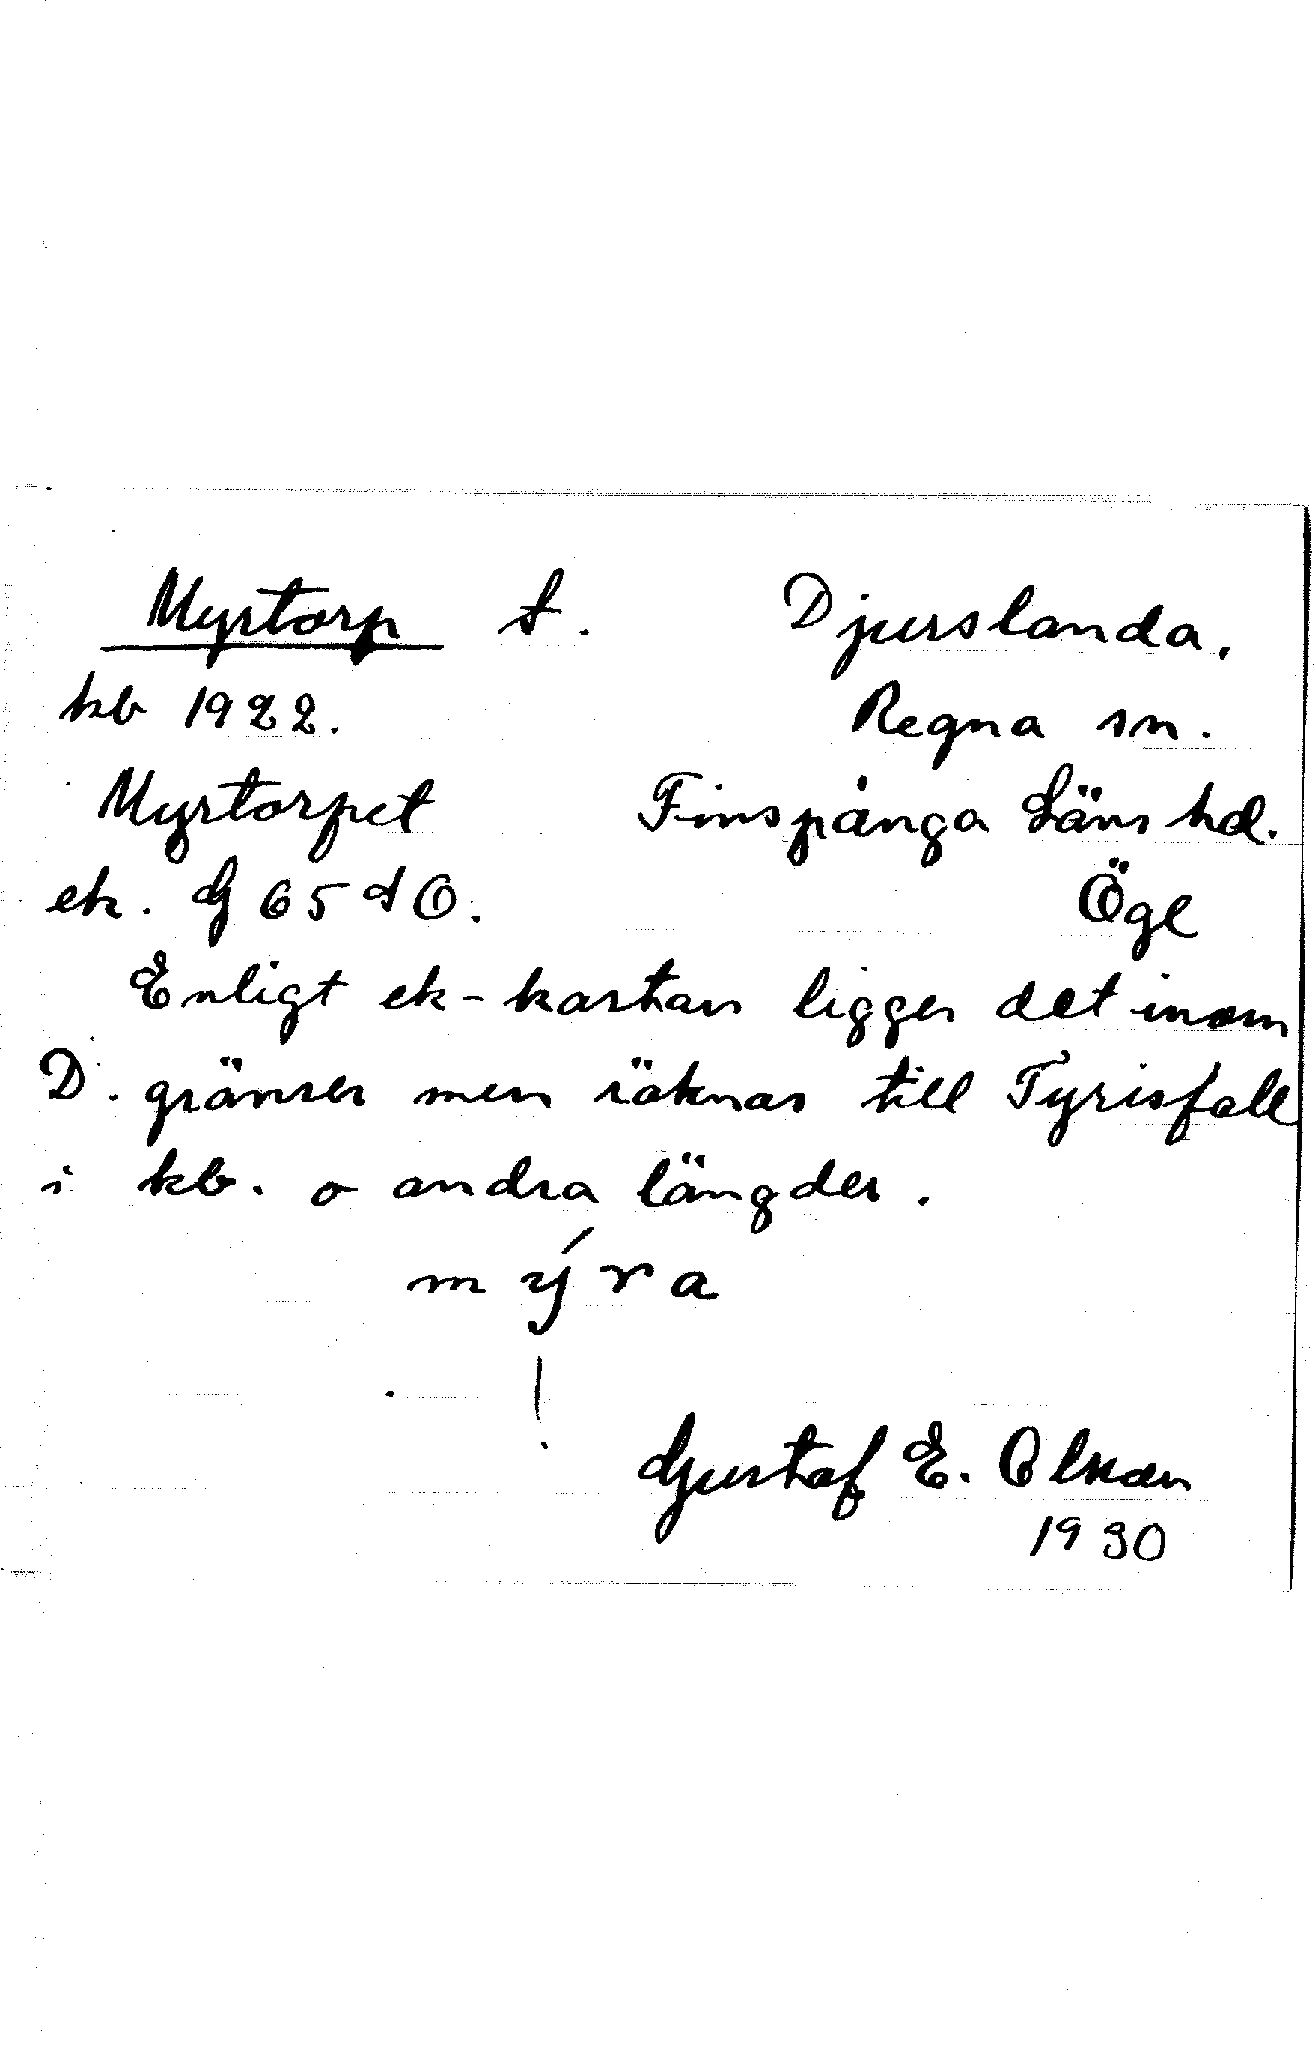 Myrtorp t. Djurslanda.
kb 1922. Regna sn.
Myrtorpet Finspånga Läns hd.
ek. G 65 d O. Ögl
Enligt ek-kartan ligger det inom
D. gränser men räknas till Tyrisfall
i kb. o andra längder.
mýra
Gustaf E. Olson
1930